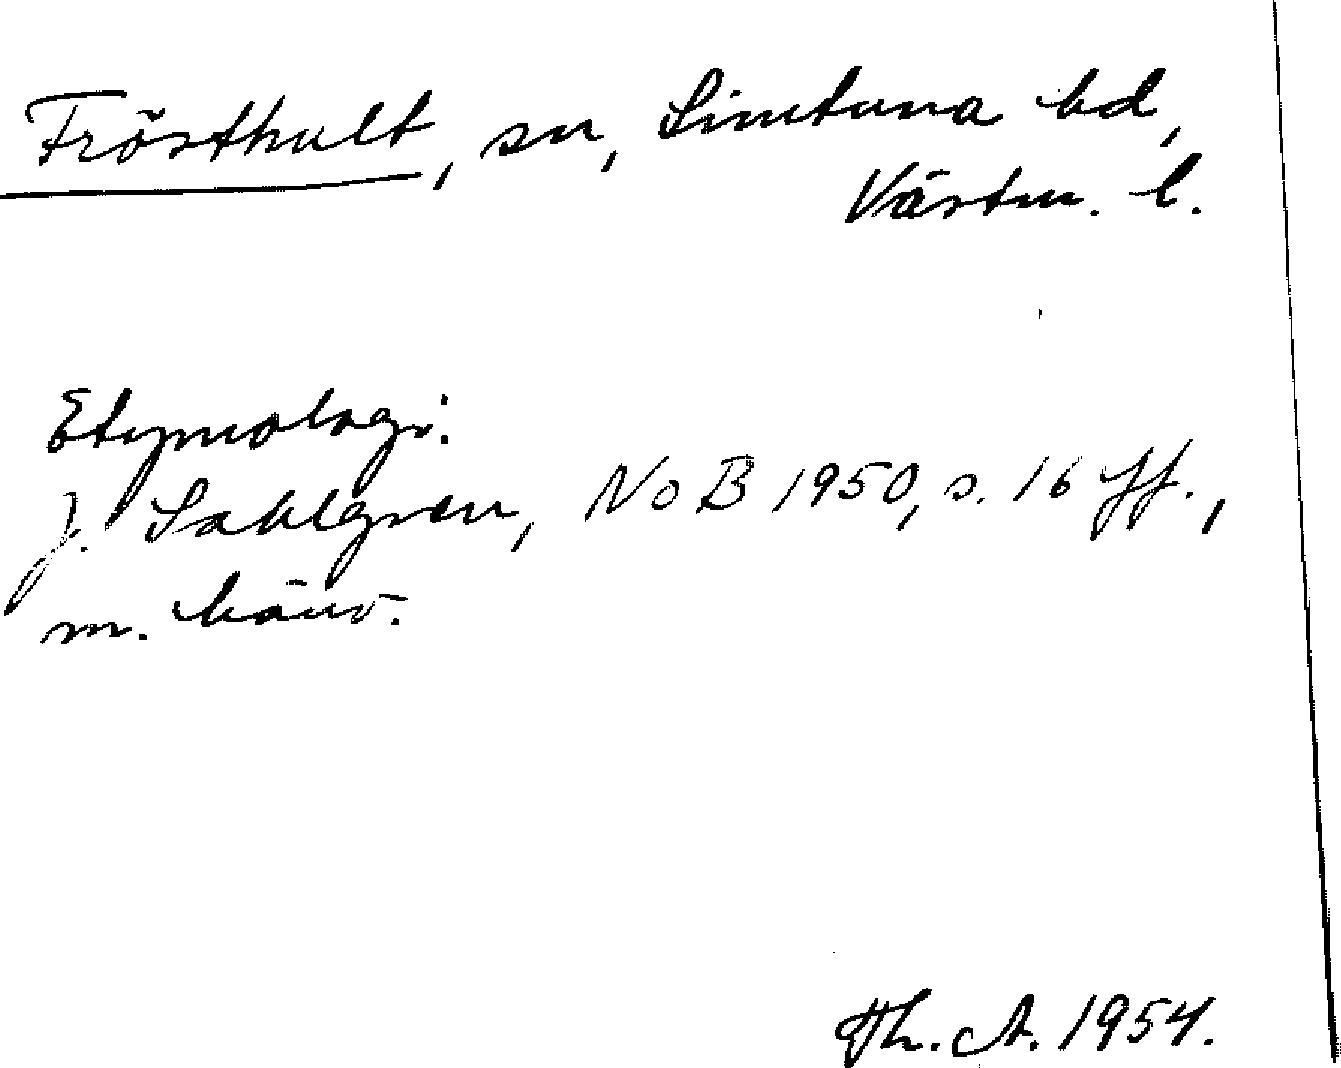 Frösthult, sn, Simtuna hd,
Västm. l.
Etymologi:
J. Sahlgren, NoB 1950, s. 16 ff.,
m. hänv.
Th. A. 1954.